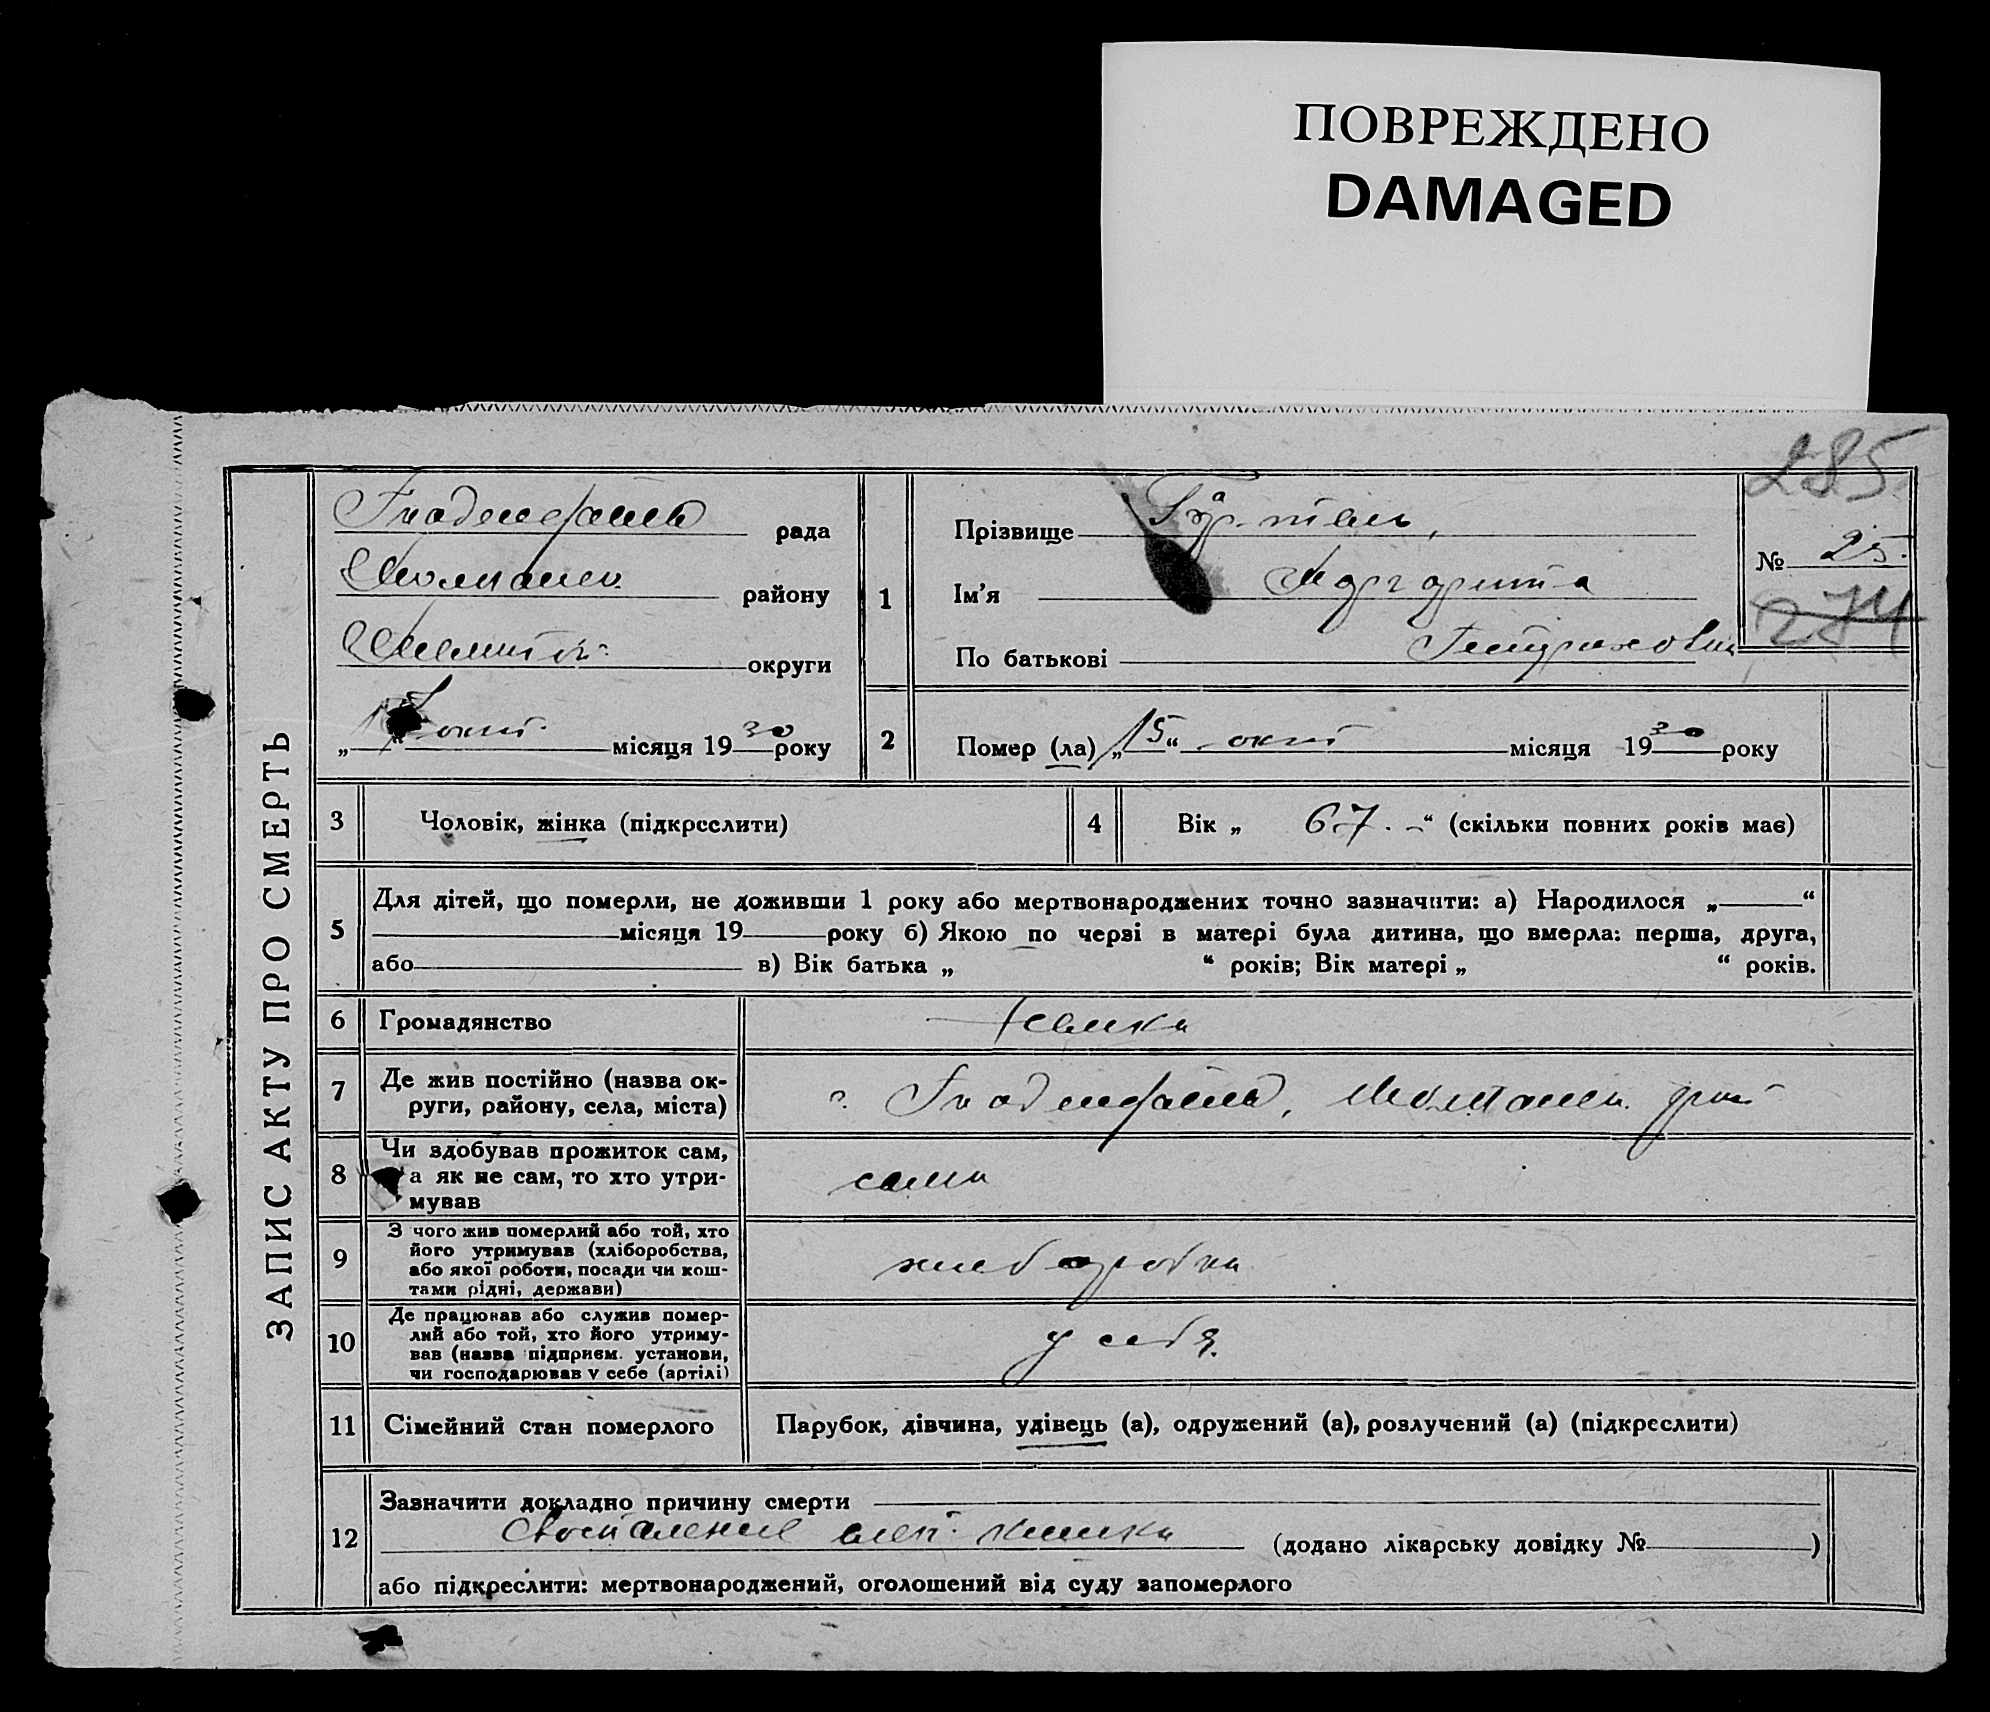 ПОВРЕЖДЕНО
DAMAGED
285
ЗАПИС АКТУ ПРО СМЕРТЬ
Гнаденфельд рада
району
округи
„ “ окт. місяця 1930 року
1
Прізвище
Ім'я Маргарита
По батькові
№ 25.
274
2
Помер (ла) „15“ окт місяця 1930 року
3 Чоловік, жінка (підкреслити)
4 Вік „ 67. “ (скільки повних років має)
5 Для дітей, що померли, не доживши 1 року або мертвонароджених точно зазначити: а) Народилося „ “
місяця 19 року б) Якою по черзі в матері була дитина, що вмерла: перша, друга,
або в) Вік батька „ “ років; Вік матері „ “ років.
6 Громадянство немка
7 Де жив постійно (назва ок-
руги, району, села, міста)
Гнаденфельд,
8 Чи здобував прожиток сам,
а як не сам, то хто утри-
мував
сама
9 З чого жив померлий або той, хто
його утримував (хліборобства,
або якої роботи, посади чи кош-
тами рідні, держави)
10 Де працював або служив помер-
лий або той, хто його утриму-
вав (назва підприєм. установи,
чи господарював у себе (артілі)
у себя.
11 Сімейний стан померлого Парубок, дівчина, удівець (а), одружений (а), розлучений (а) (підкреслити)
12 Зазначити докладно причину смерти
(додано лікарську довідку № )
або підкреслити: мертвонароджений, оголошений від суду запомерлого